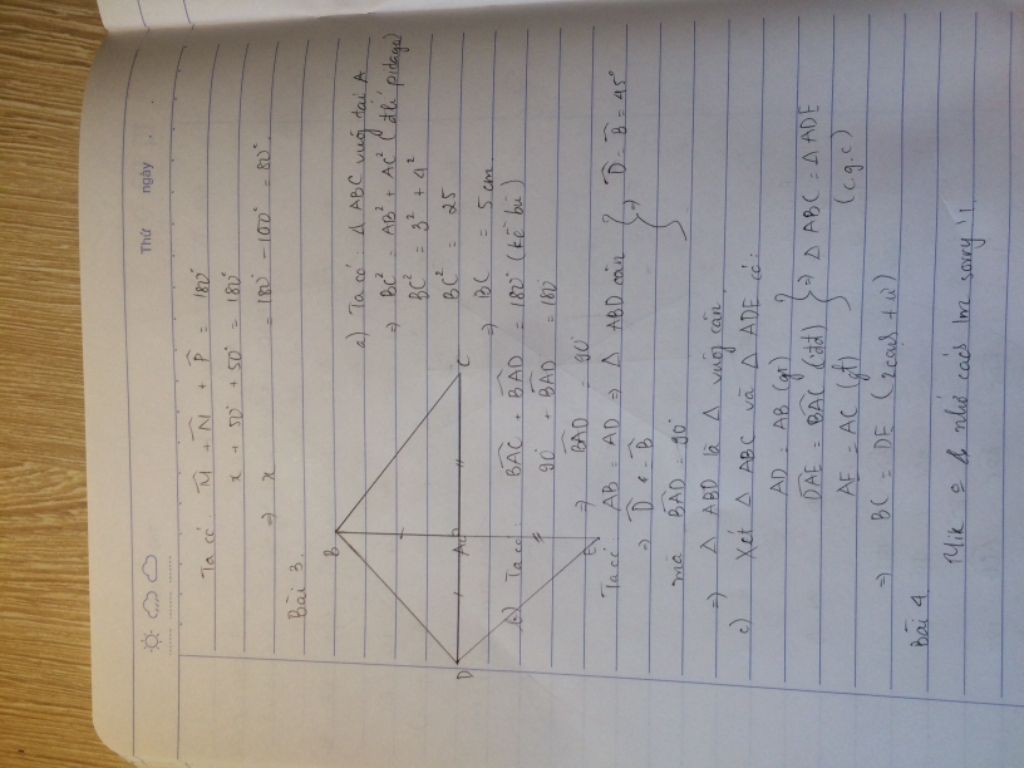 Thứ ngày
Ta có: M̂ + N̂ + P̂ = 180°
x + 50° + 50° = 180°
=> x = 180° - 100° = 80°
Bài 3.
B
D
A
C
E
a) Ta có: Δ ABC vuông tại A
=> BC² = AB² + AC² (đ.lí pitago)
BC² = 3² + 4²
BC² = 25
=> BC = 5 cm
b) Ta có: BAC + BAD = 180° (kề bù)
90° + BAD = 180°
=> BAD = 90°
Ta có: AB = AD => Δ ABD cân
=> D̂ = B̂
mà BAD = 90°
} => D̂ = B̂ = 45°
=> Δ ABD là Δ vuông cân.
c) Xét Δ ABC và Δ ADE có:
AD = AB (gt)
DAE = BAC (đđ)
AE = AC (gt)
} => Δ ABC = Δ ADE
(c.g.c)
=> BC = DE (2 cạnh t.ứ)
Bài 4.
Mik o nhớ cách lm sorry!